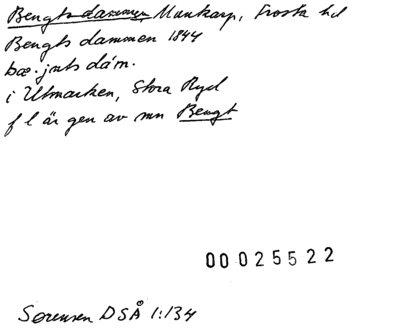 Bengtsdammen Munkarp, Frosta hd
Bengts dammen 1844
bæ.jnts dám.
i Utmarken, Stora Ryd
f l är gen av mn Bengt
00025522
Sørensen DSÅ 1:134